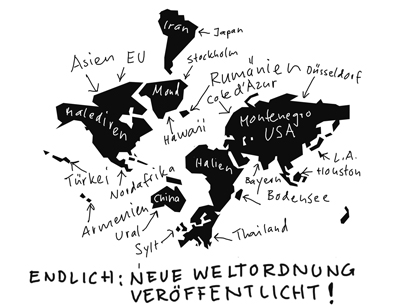 Iran
Japan
Stockholm
Asien EU
Rumänien
Düsseldorf
Mond
Cote d'Azur
Malediven
Hawaii
Montenegro
USA
Italien
L.A.
Houston
Türkei
Nordafrika
Bayern
Bodensee
China
Armenien
Ural
Sylt
Thailand
ENDLICH: NEUE WELTORDNUNG
VERÖFFENTLICHT!